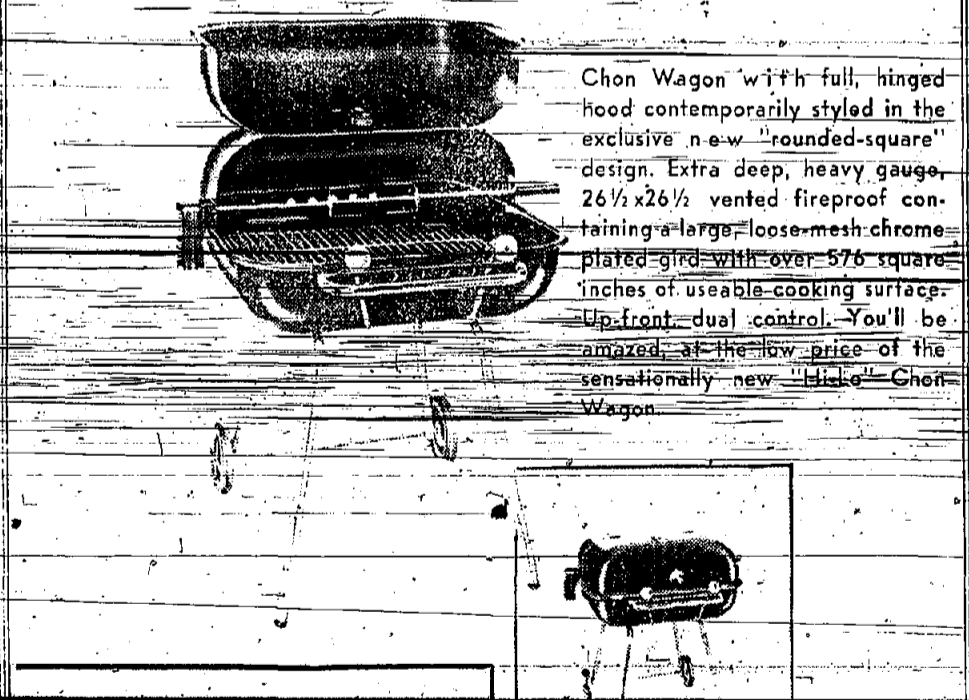 Chon Wagon with full, hinged
hood contemporarily styled in the
exclusive new "rounded-square"
design. Extra deep, heavy gauge,
26½x26½ vented fireproof con-
taining a large, loose-mesh chrome
plated gird with over 576 square
inches of useable cooking surface.
Up-front dual control. You'll be
amazed, at the low price of the
sensationally new "Hi-Lo" Chon
Wagon.